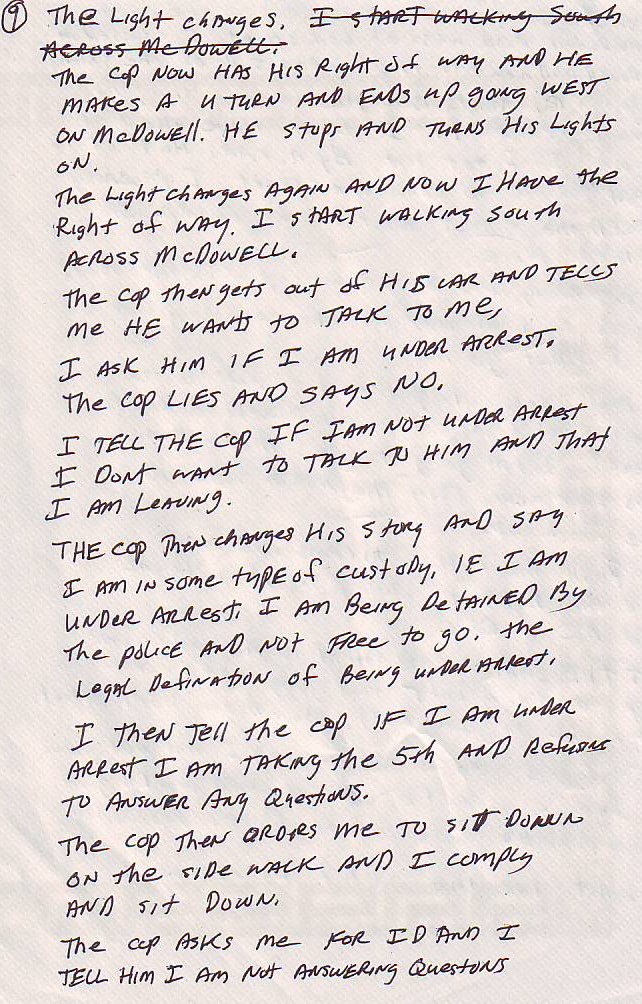 9 The Light changes. I START WALKING South
ACROSS McDOWELL.
The Cop NOW HAS HIS Right of WAY AND HE
MAKES A U TURN AND ENDS up going WEST
ON McDowell. HE stops AND TURNS His Lights
ON.
The Light changes AGAIN AND NOW I HAVE the
Right of WAY. I START WALKING South
ACROSS McDOWELL.
The Cop then gets out of HIS CAR AND TELLS
me HE WANTS to TALK TO me,
I ASK HIM IF I AM UNDER ARREST.
The Cop LIES AND SAYS NO.
I TELL THE Cop IF I AM NOT UNDER ARREST
I DONT WANT to TALK TO HIM AND THAT
I AM LEAVING.
THE Cop Then changes HIS Story AND SAY
I AM IN Some type of custody, IE I AM
UNDER ARREST. I AM Being DetAINED By
The police AND NOT FREE to go. the
Legal Defination of Being under ARREST.
I then Tell the cop IF I AM UNDER
ARREST I AM TAKING the 5th AND Refusing
TO ANSWER Any Questions.
The Cop Then ORDERS me TO SIT DOWN
ON the SIDE WALK AND I comply
AND SIT DOWN.
The cop ASKS me FOR ID AND I
TELL HIM I AM NOT ANSWERING Questons